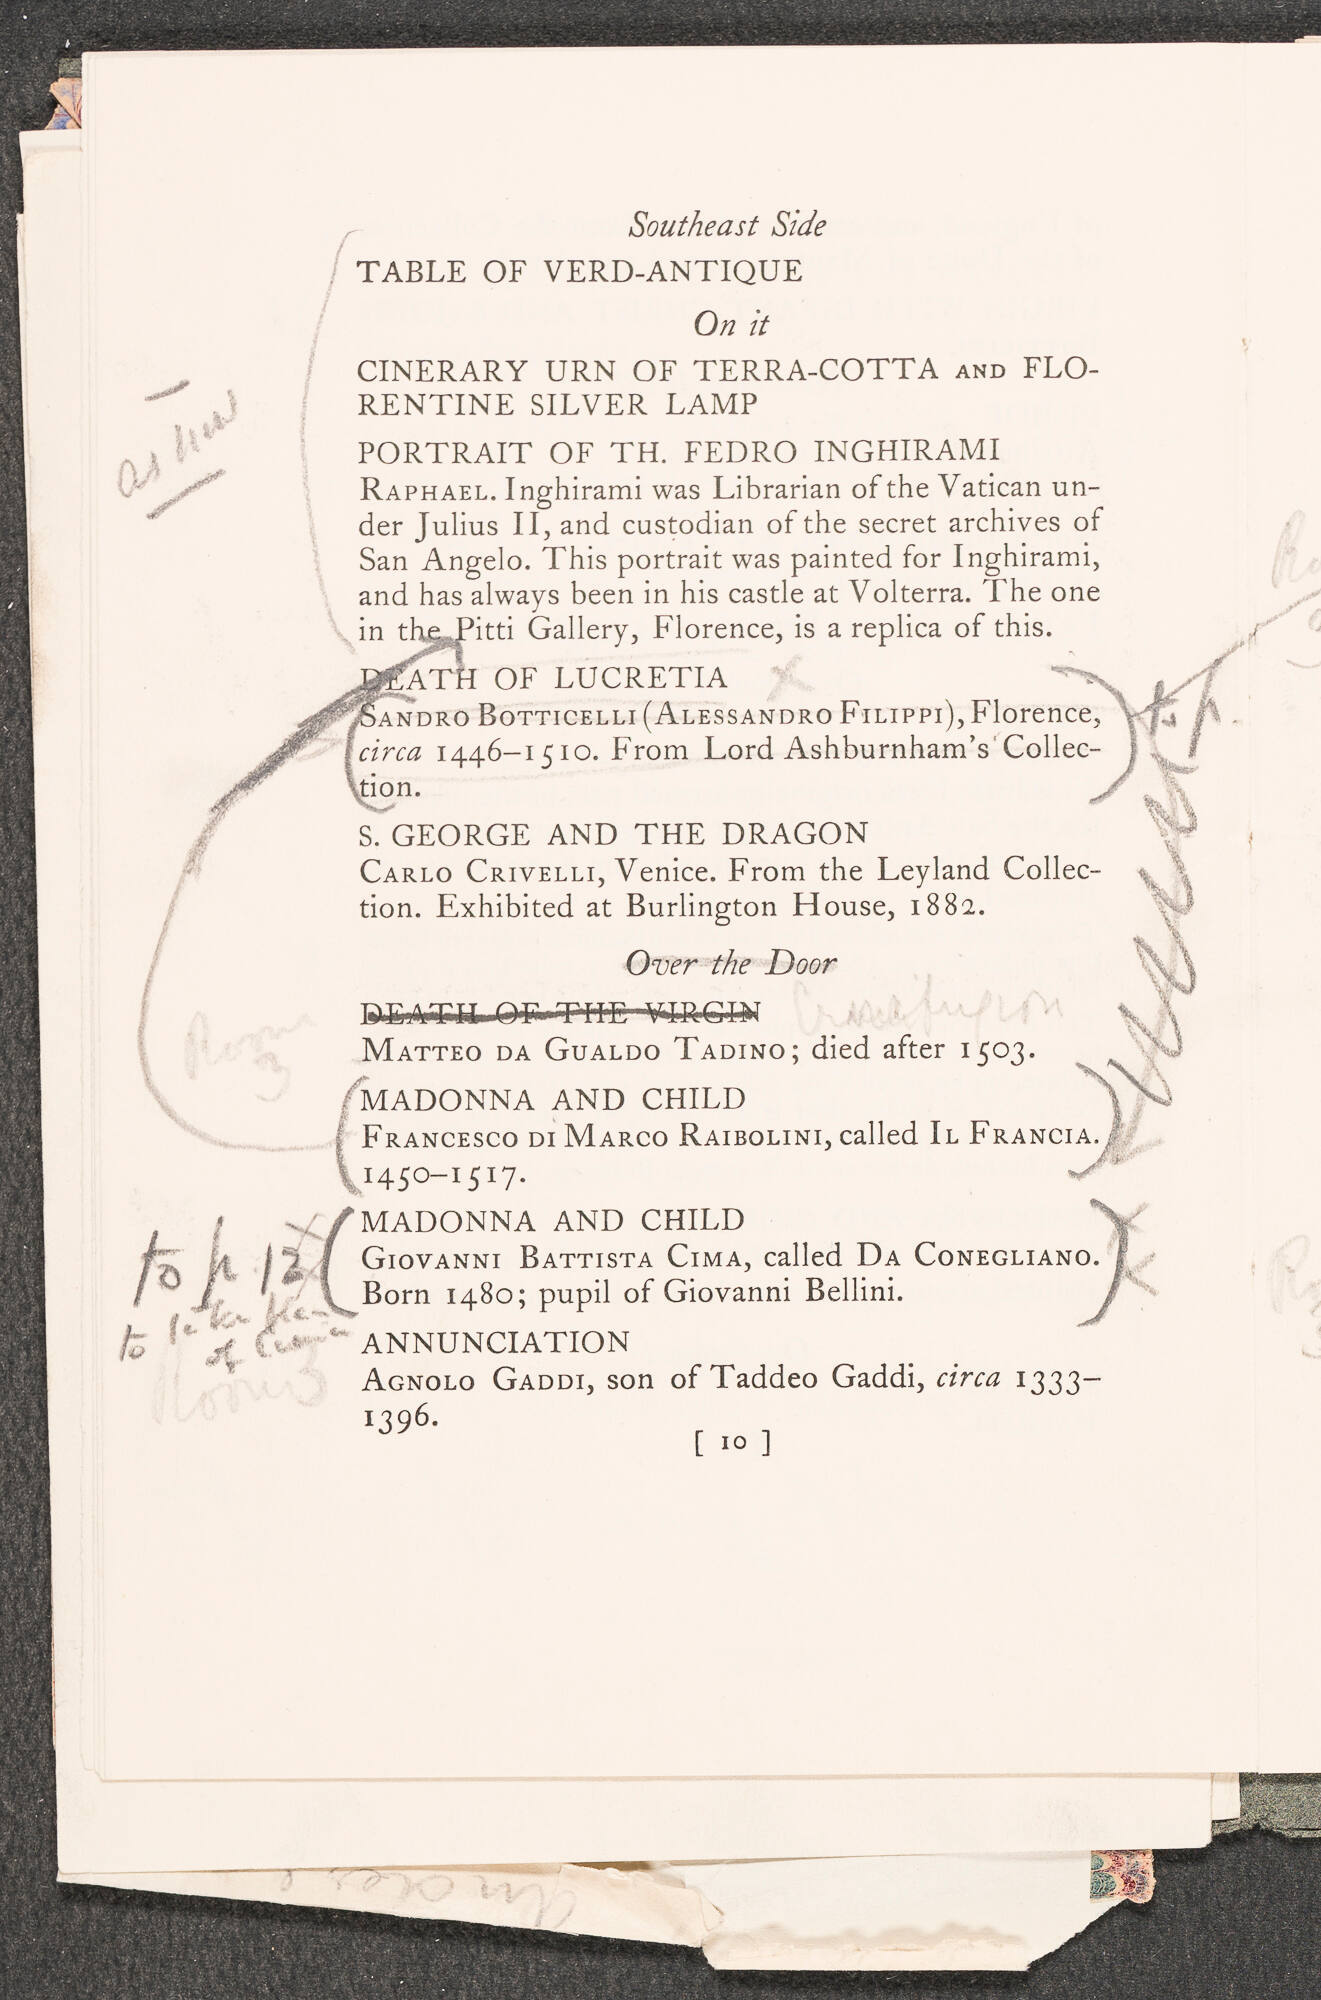 Southeast Side
TABLE OF VERD-ANTIQUE
On it
CINERARY URN OF TERRA-COTTA AND FLO-
RENTINE SILVER LAMP
as now
PORTRAIT OF TH. FEDRO INGHIRAMI
RAPHAEL. Inghirami was Librarian of the Vatican un-
der Julius II, and custodian of the secret archives of
San Angelo. This portrait was painted for Inghirami,
and has always been in his castle at Volterra. The one
in the Pitti Gallery, Florence, is a replica of this.
DEATH OF LUCRETIA X
SANDRO BOTTICELLI (ALESSANDRO FILIPPI), Florence,
to p.
circa 1446–1510. From Lord Ashburnham's Collec-
tion.
S. GEORGE AND THE DRAGON
CARLO CRIVELLI, Venice. From the Leyland Collec-
tion. Exhibited at Burlington House, 1882.
Over the Door
DEATH OF THE VIRGIN Crucifixion
MATTEO DA GUALDO TADINO; died after 1503.
Room
3
MADONNA AND CHILD
FRANCESCO DI MARCO RAIBOLINI, called IL FRANCIA.
1450–1517.
MADONNA AND CHILD
GIOVANNI BATTISTA CIMA, called DA CONEGLIANO.
Born 1480; pupil of Giovanni Bellini.
to p. 12
to take place
of
Room 3
ANNUNCIATION
AGNOLO GADDI, son of Taddeo Gaddi, circa 1333–
1396.
[ 10 ]